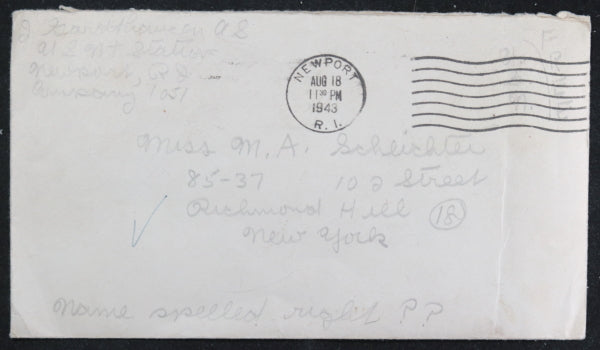 U.S.N.T. Station
Newport, R I
Company 1051
NEWPORT
AUG 18
11 30 PM
1943
R. I.
Free
Miss M. A. Schlichter
85-37 102 Street
Richmond Hill 18
New York
Name spelled right ??